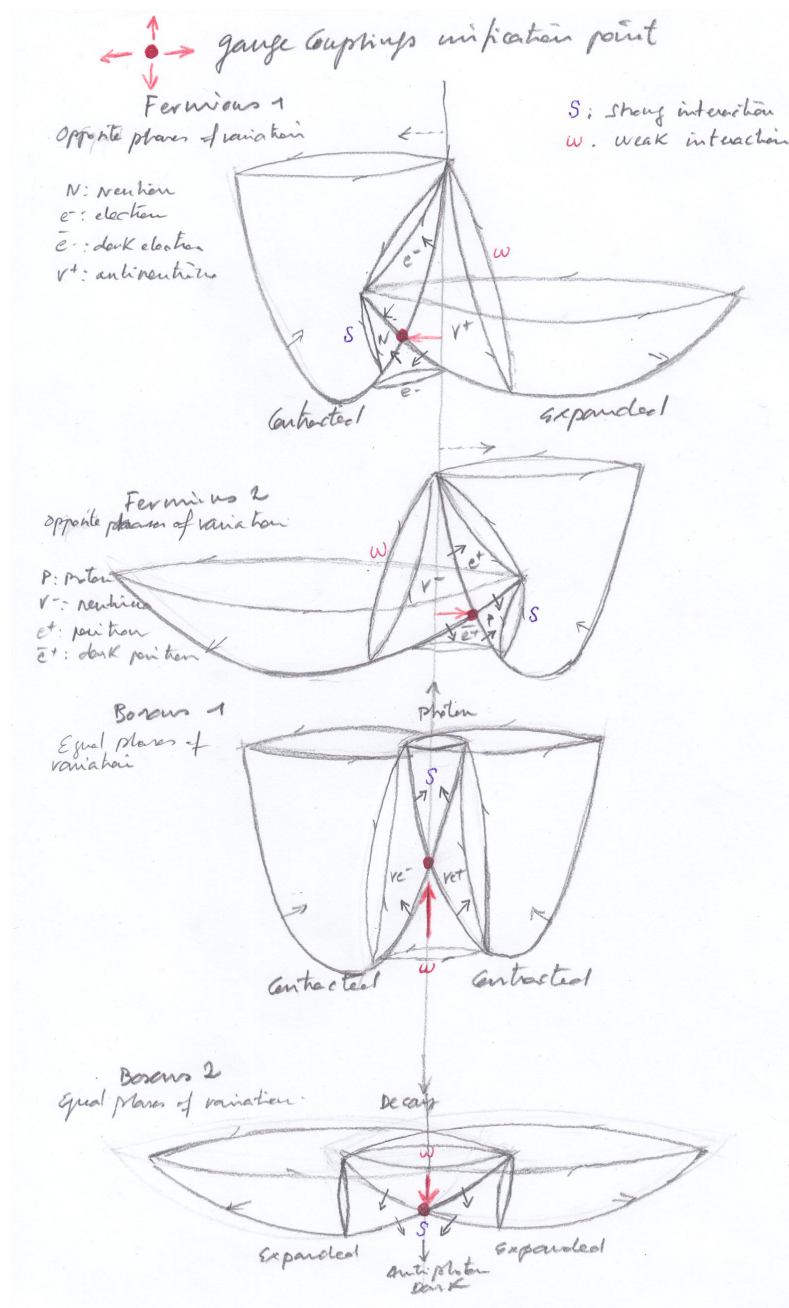 gauge couplings unification point
Fermions 1
Opposite phases of variation
S: strong interaction
W. weak interaction
N: Neutron
e-: electron
e̅-: dark electron
v+: antineutrino
e-
W
S
N
v+
e-
Contracted
Expanded
Fermions 2
Opposite phases of variation
W
e+
P: proton
v-: neutrino
e+: positron
e̅+: dark positron
v-
S
P
e̅+
Bosons 1
photon
Equal phases of
variation
S
ve-
ve+
W
Contracted
Contracted
Bosons 2
Equal phases of variation.
Decay
W
S
Expanded
Expanded
Antiphoton
Dark